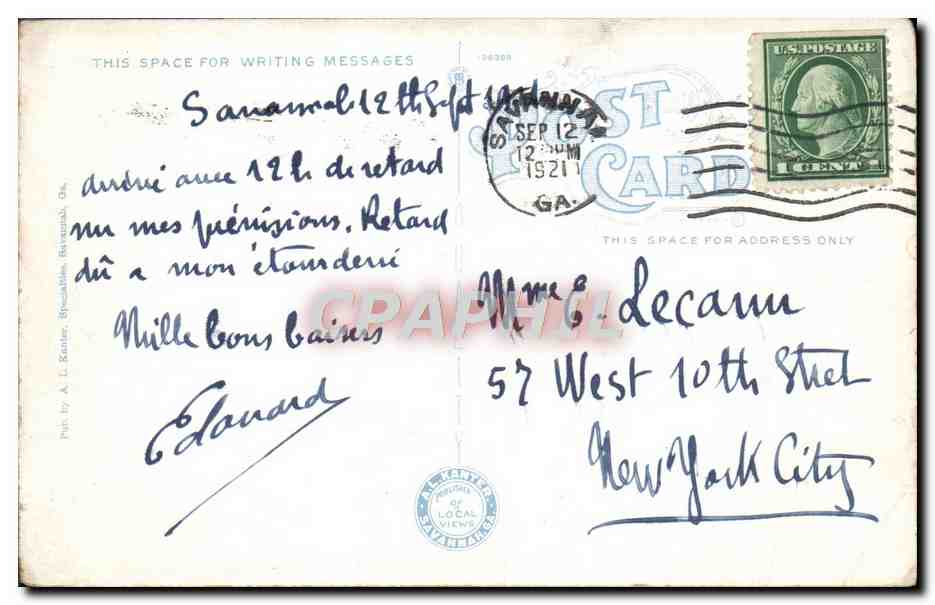 THIS SPACE FOR WRITING MESSAGES
Savannah 12th Sept 1921
Arrivé avec 12 h de retard
sur mes prévisions. Retard
dû a mon étourderie
Mille bons baisers
Edouard
Pub. by A. L. Kanter, Specialties, Savannah, Ga.
POST
CARD
SAVANNAH
SEP 12
1921
GA.
U.S. POSTAGE
1 CENT 1
THIS SPACE FOR ADDRESS ONLY
Mme E. Lecann
57 West 10th Street
New York City
CPAPHIL
A. L. KANTER
PUBLISHER
OF
LOCAL
VIEWS
SAVANNAH, GA.